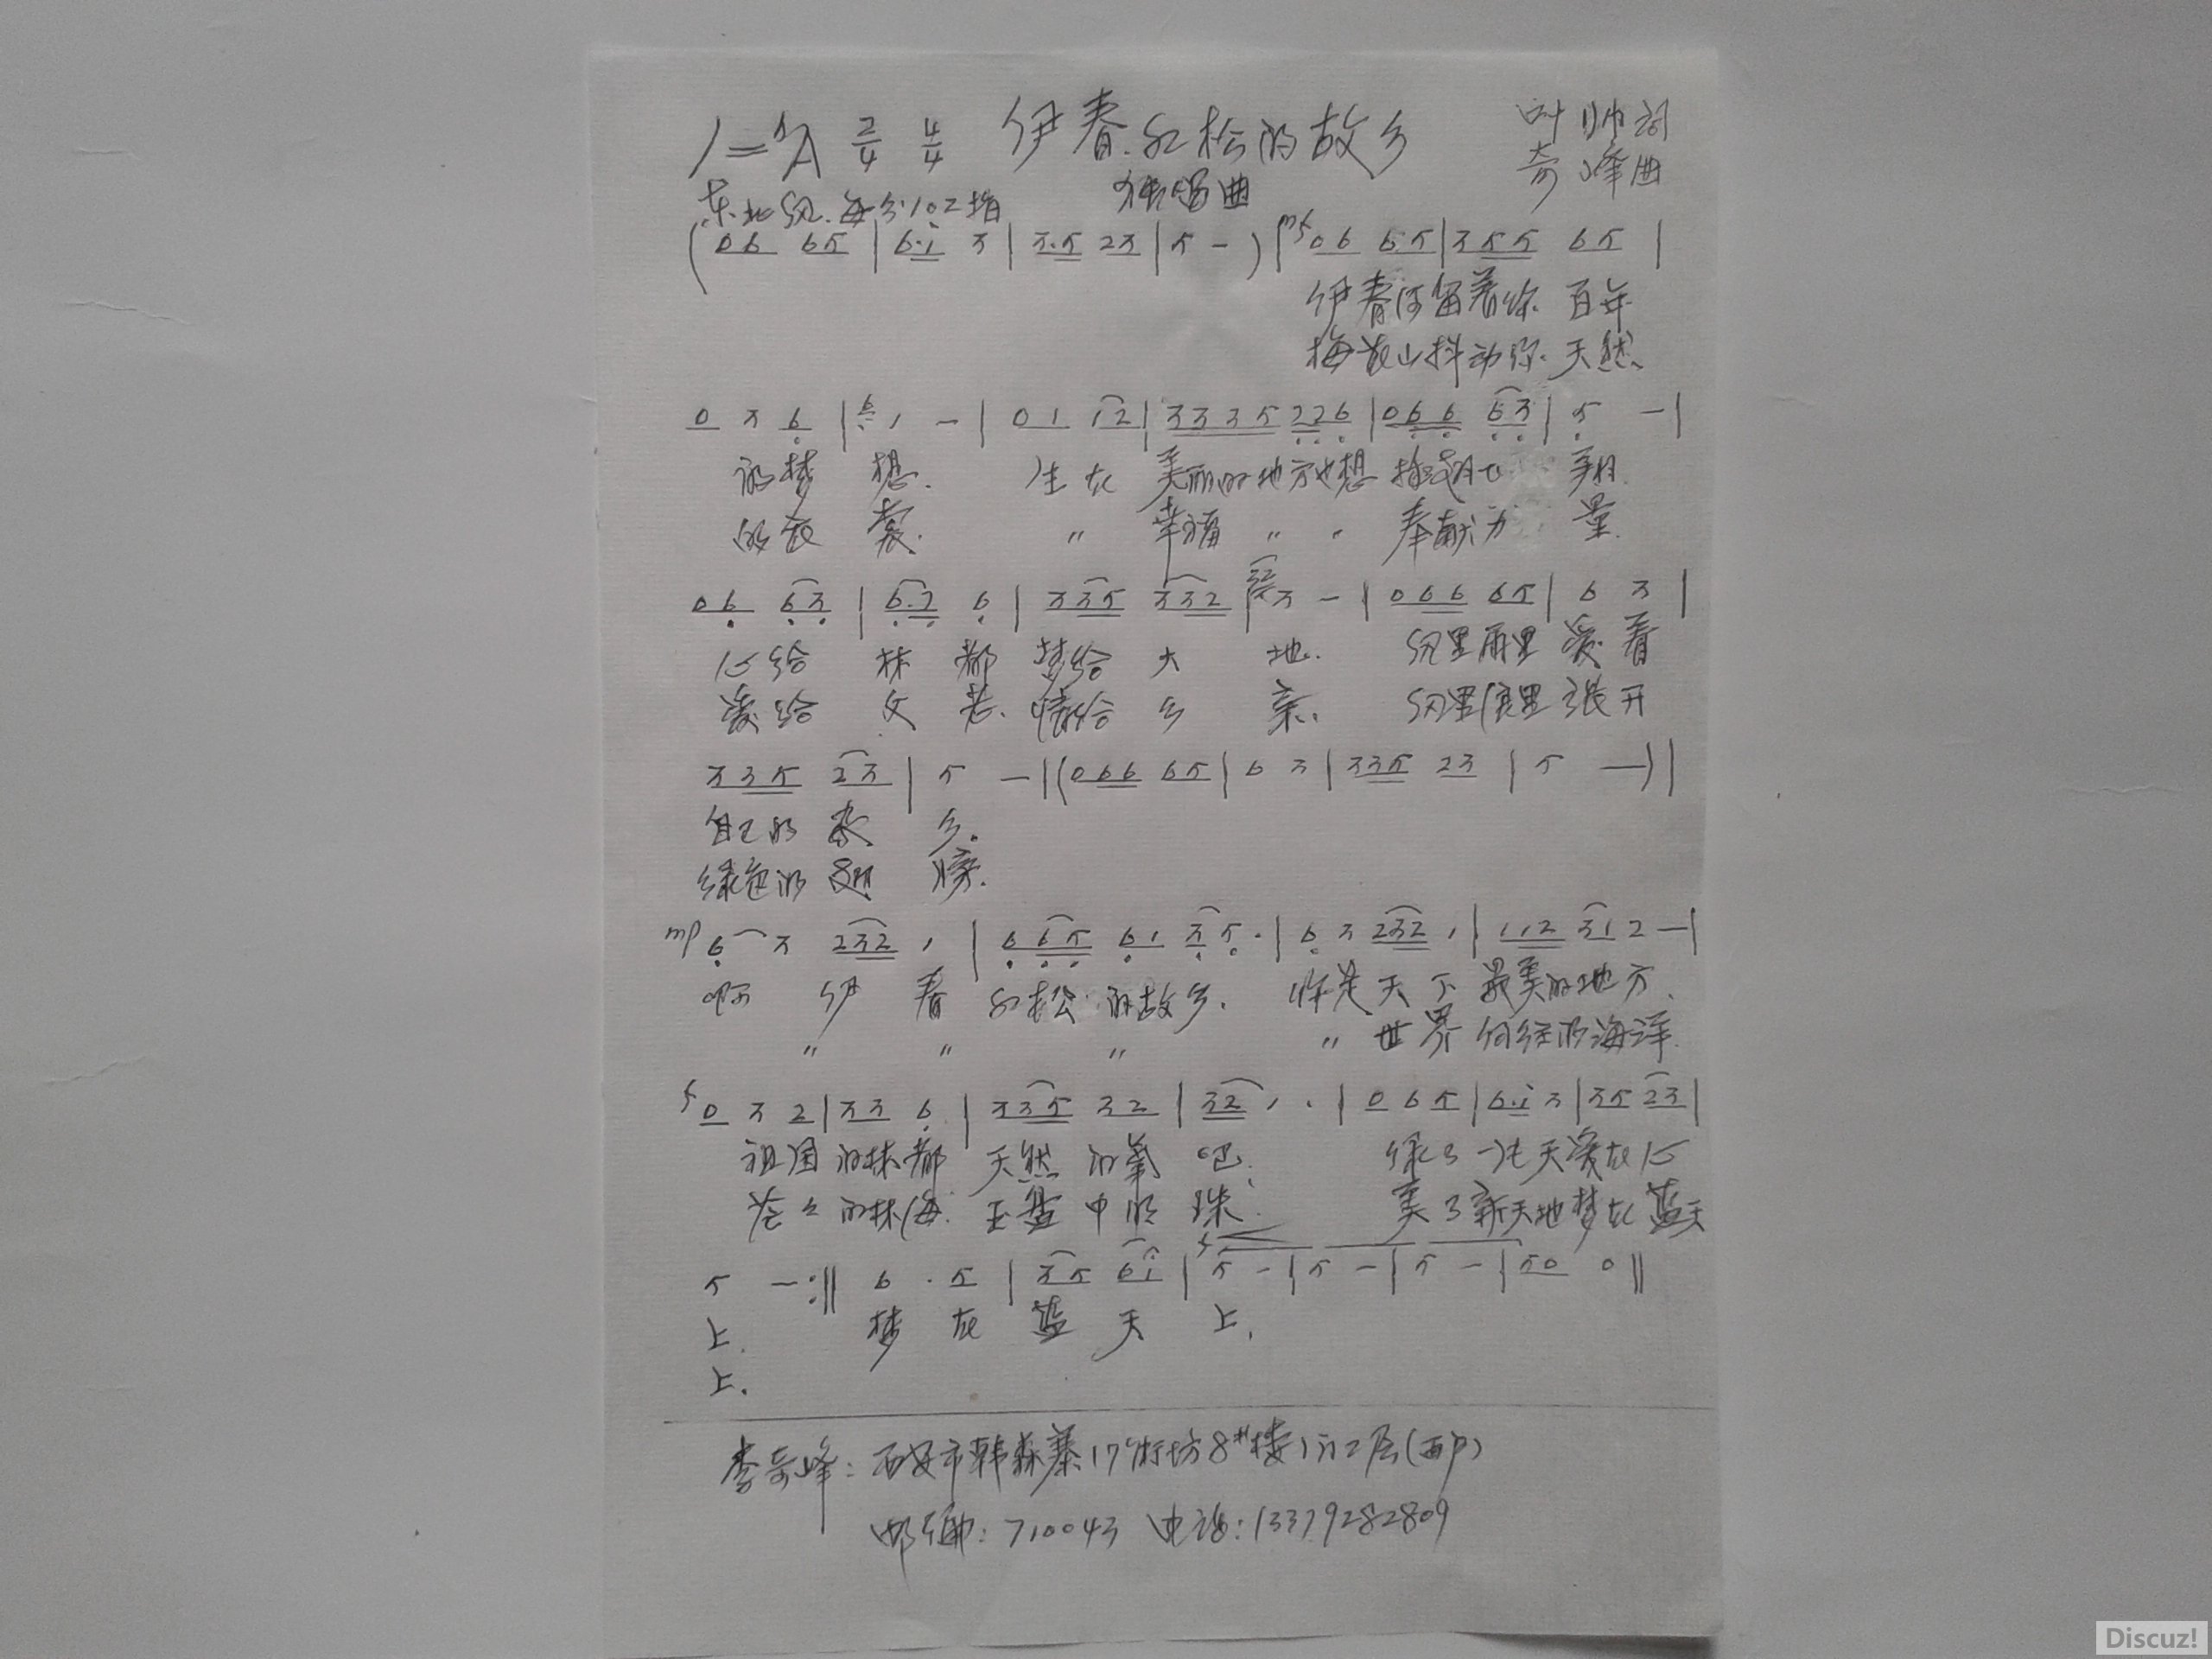 1=♭A 2/4 4/4 伊春.红松的故乡 叶帅词
独唱曲 奇峰曲
东北风.每分102拍
(06 65|6·i 3|3·5 23|5 -)|mf 06 65|355 65|
伊春河留着你 百年
梅花山抖动你 天然
0 3 6|1 -|01 12|3335 226|066 63|5 -|
的梦 想. 生在 美丽的地方也想 翔.
的衣 裳. 〃 幸福 〃 〃 奉献力 量.
06 63|6·1 6|335 332|3 -|066 65|6 3|
心给 林 都 梦给 大 地. 风里雨里 爱 看
爱给 父 老. 情给 乡 亲. 风里 里 张 开
335 23|5 -|(066 65|6 3|335 23|5 —)|
自己的 家 乡.
绿色的 翅 膀.
mp 6 3 232 1|6 65 61 35·|6 3 232 1|112 31 2 —|
啊 伊 春 红松 的故乡. 你是 天 下 最美的地方.
〃 〃 〃 〃 世 界 的海洋.
f 0 3 2|33 6|335 32|32 1 ·|0 6 5|6·i 3|35 23|
祖国 的林都 天然 的氧 吧. 绿了 天爱在心
茫々 的林海. 玉盘 中的 珠. 美了新天地梦在蓝天
5 —:‖ 6 · 5|35 6i|f 5 -|5 -|5 -|50 0‖
上. 梦 在 蓝 天 上.
上.
李奇峰: 西安市韩森寨17街坊8#楼1门2层(西户)
邮编: 710043 电话: 13379282809
Discuz!